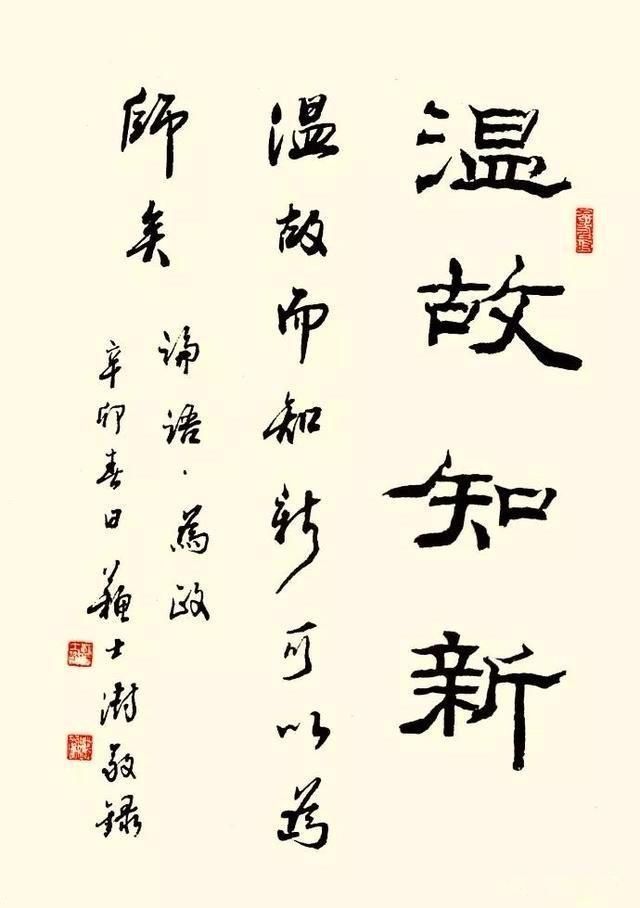 温故知新
温故而知新可以為
師矣
論語·為政
辛卯春日蘇士澍敬録